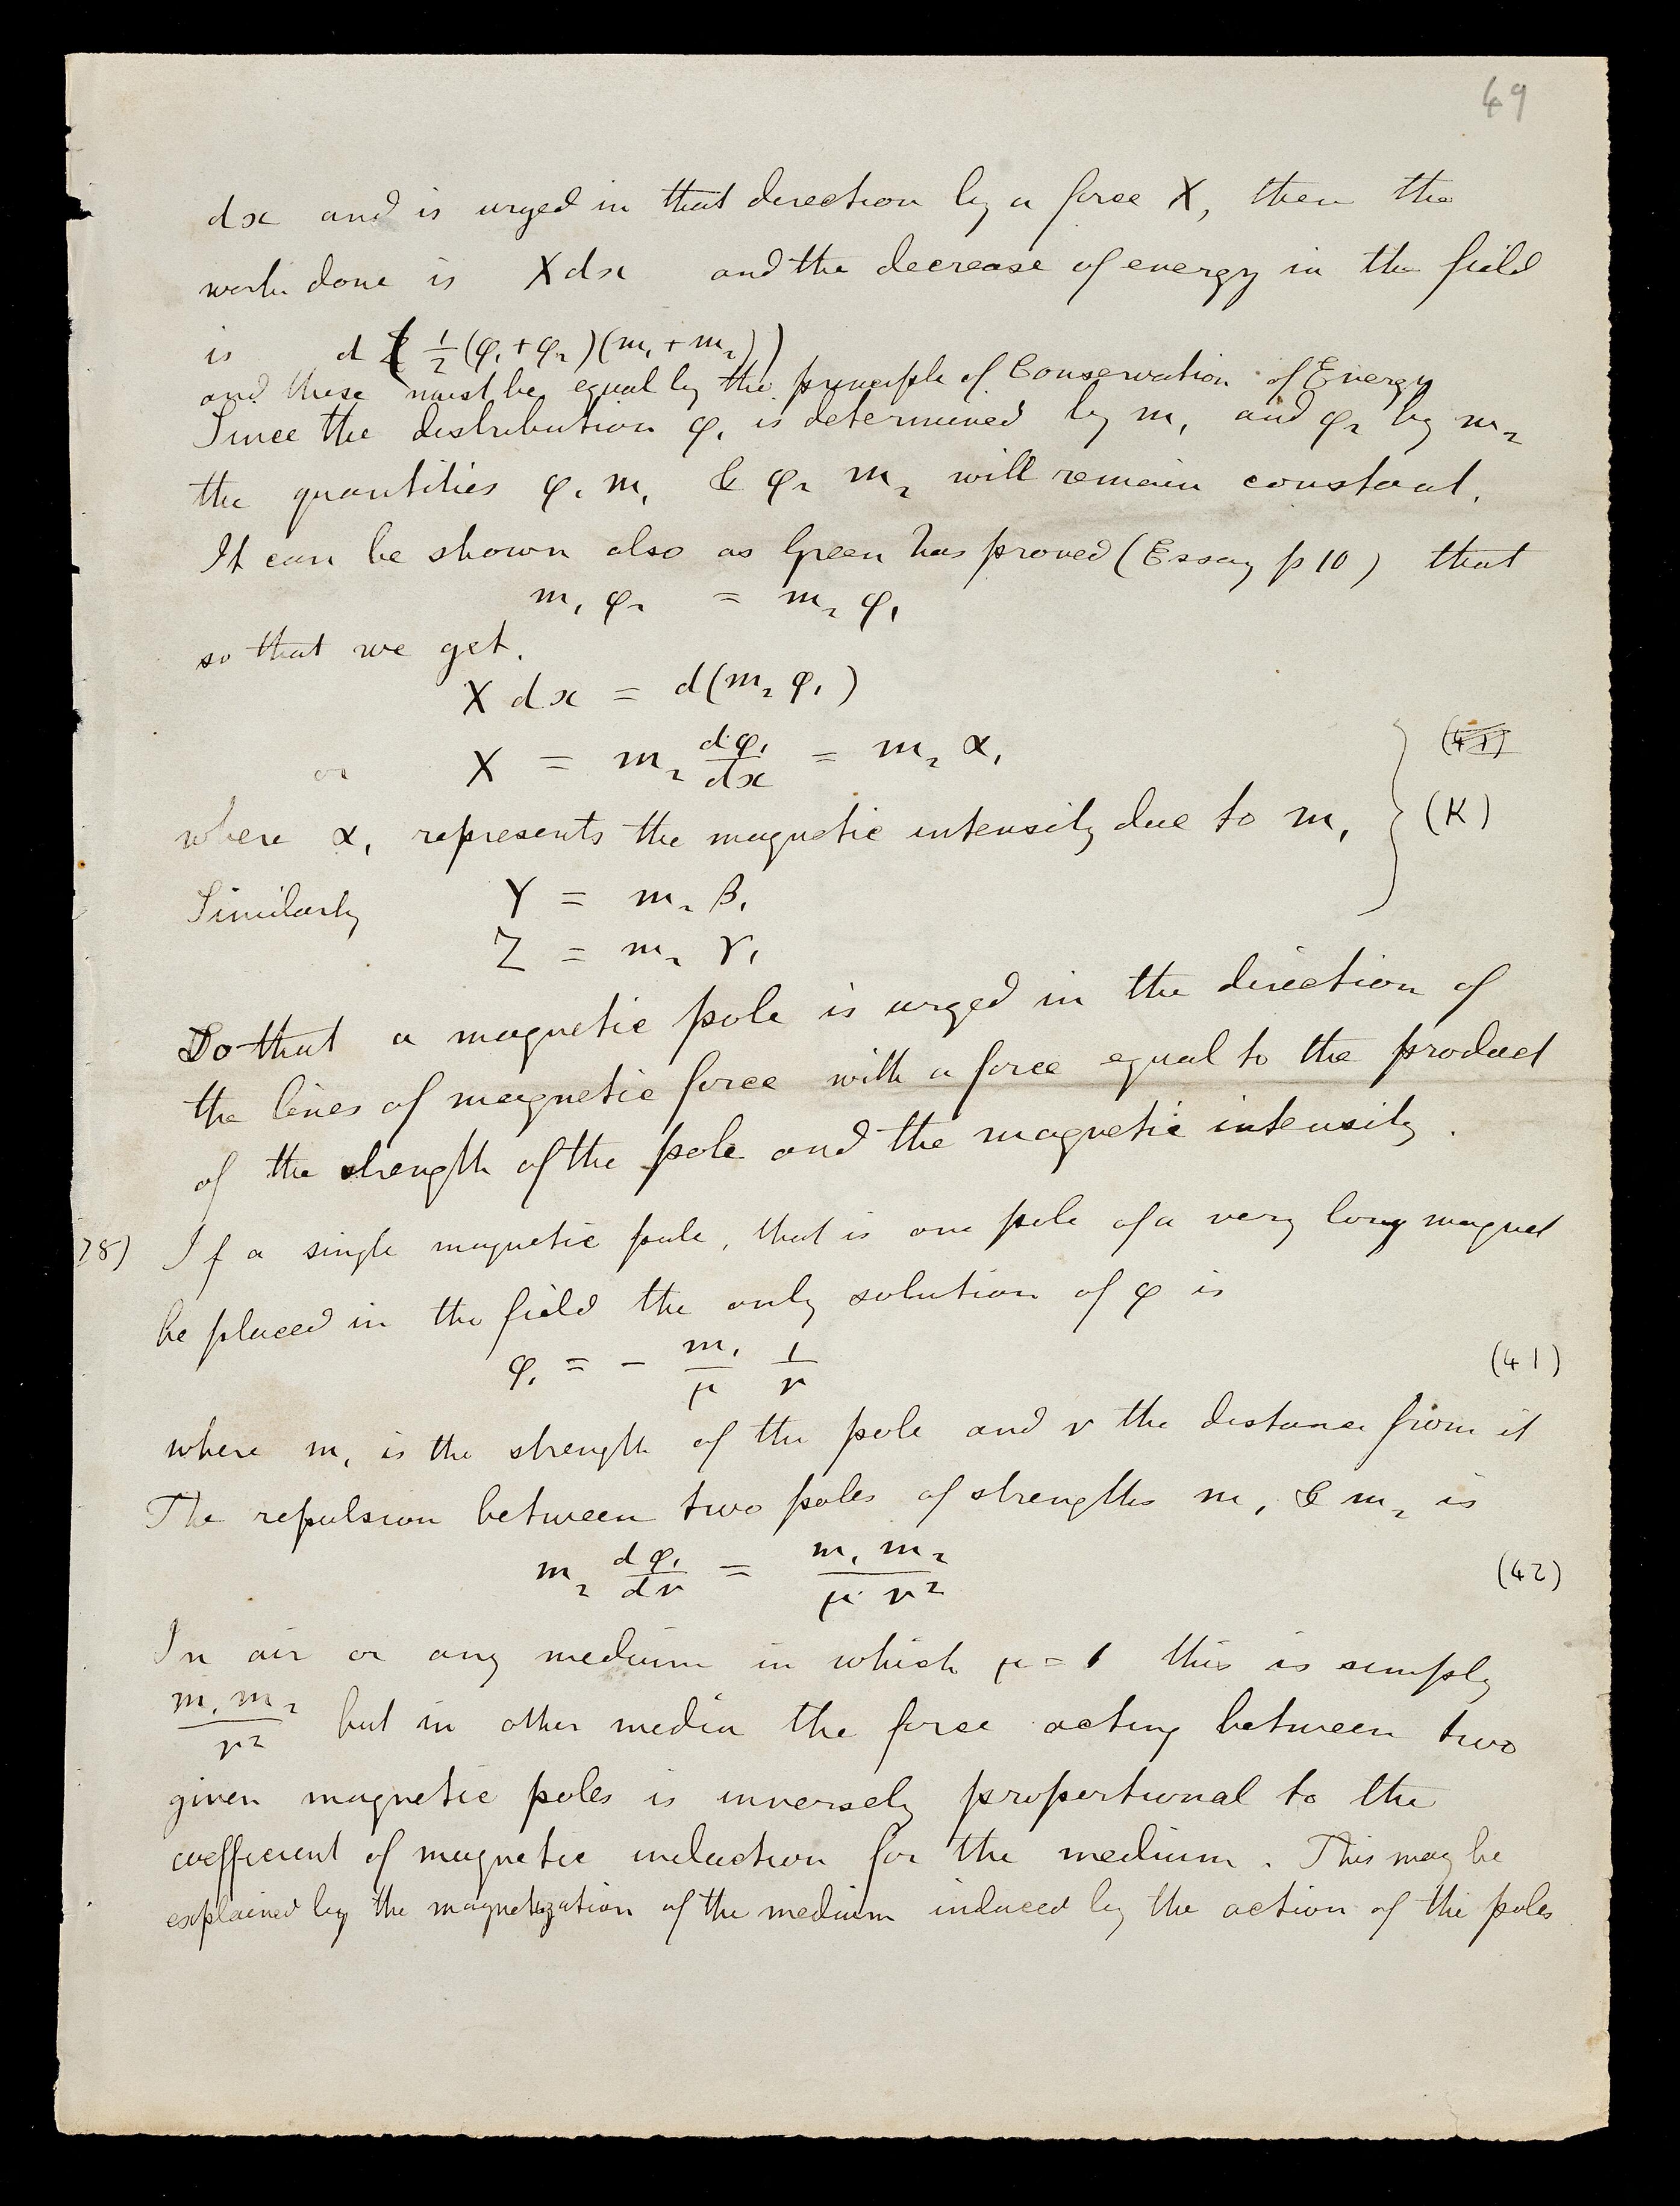 49
dx and is urged in that direction by a force X, then the
work done is X dx and the decrease of energy in the field
is d ( 1/2 (φ₁ + φ₂)(m₁ + m₂))
and these must be equal by the principle of Conservation of Energy
Since the distribution φ₁ is determined by m₁ and φ₂ by m₂
the quantities φ₁ m₁ & φ₂ m₂ will remain constant.
It can be shown also as Green has proved (Essay p 10) that
m₁ φ₂ = m₂ φ₁
so that we get.
X dx = d(m₂ φ₁)
or X = m₂ dφ₁/dx = m₂ α₁ (41)
where α₁ represents the magnetic intensity due to m₁ (K)
Similarly Y = m₂ β₁
Z = m₂ γ₁
So that a magnetic pole is urged in the direction of
the lines of magnetic force with a force equal to the product
of the strength of the pole and the magnetic intensity.
78) If a single magnetic pole, that is one pole of a very long magnet
be placed in the field the only solution of φ is
φ₁ = - m₁/μ 1/r (41)
where m₁ is the strength of the pole and r the distance from it
The repulsion between two poles of strengths m₁ & m₂ is
m₂ dφ₁/dr = m₁ m₂/μ r² (42)
In air or any medium in which μ = 1 this is simply
m₁ m₂/r² but in other media the force acting between two
given magnetic poles is inversely proportional to the
coefficient of magnetic induction for the medium. This may be
explained by the magnetization of the medium induced by the action of the poles